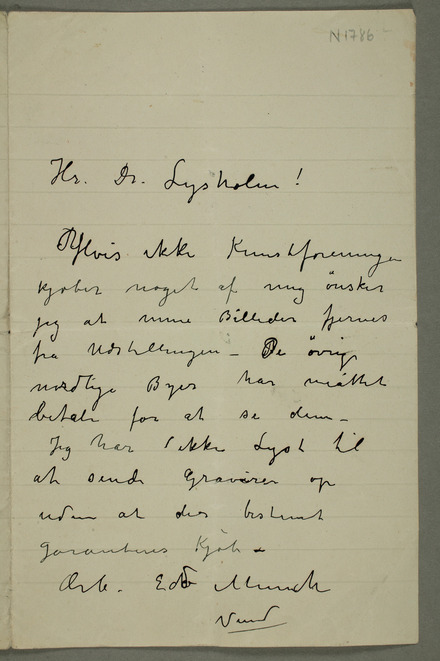 N 1786
Hr. Dr. Lysholm!
Hvis ikke Kunstforeningen
kjøber noget af mig ønsker
jeg at mine Billeder fjernes
fra Udstillingen – De øvrige
nordlige Byer har måttet
betale for at se dem –
Jeg har ikke Lyst til
at sende Gravürer op
uden at der bestemt
garanteres Kjøb –
Ærb. Edv Munch
Vend